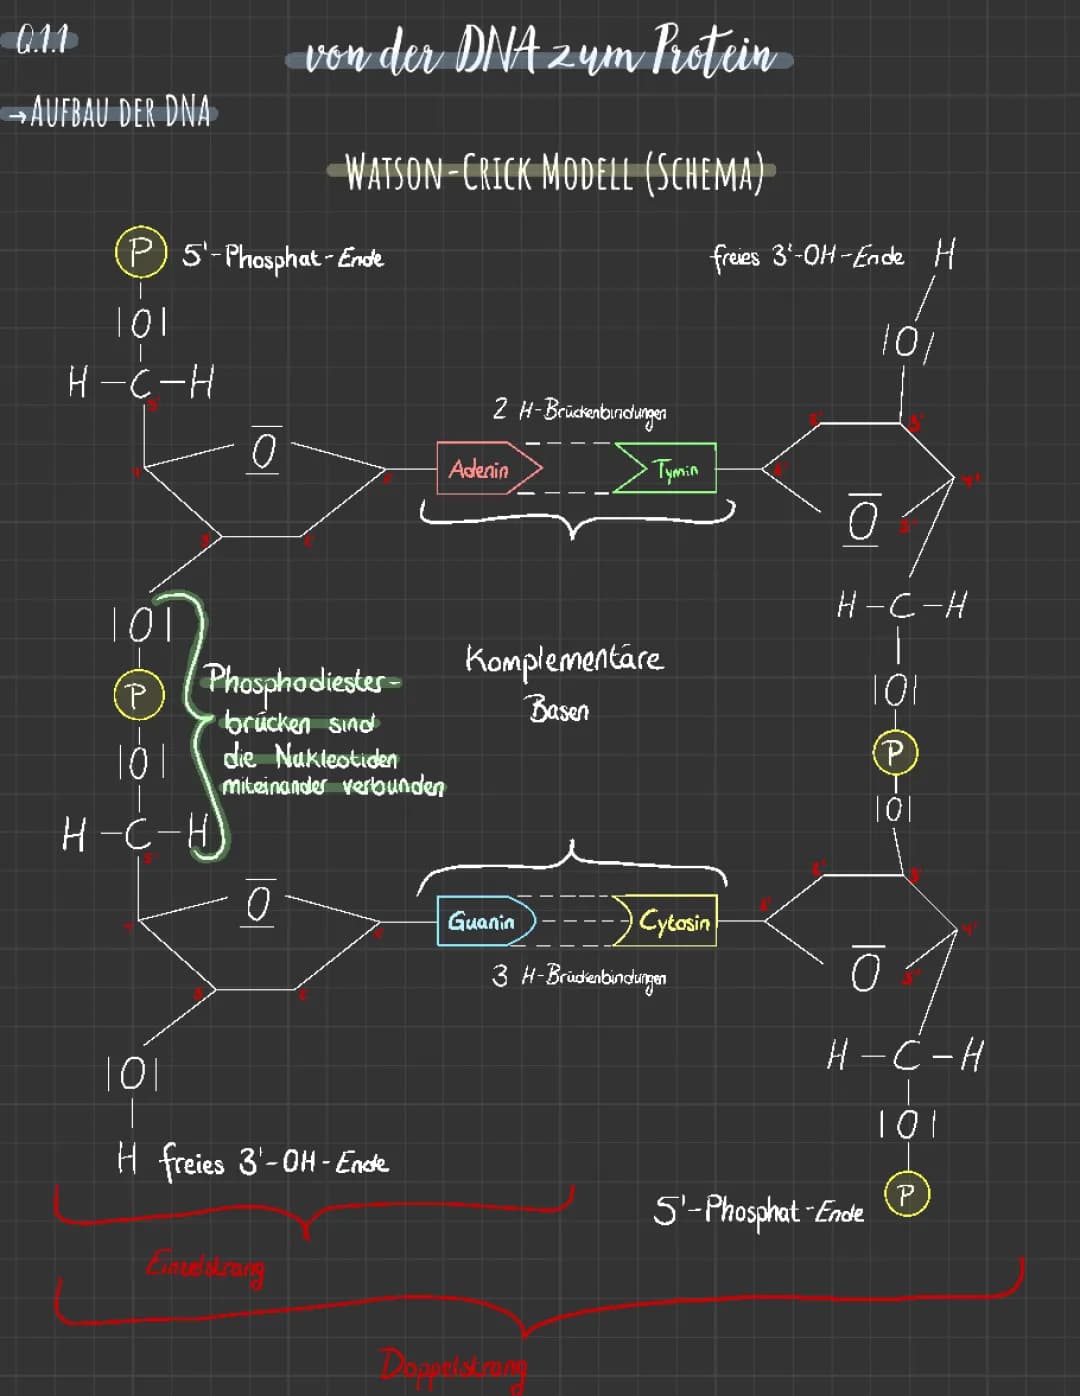 Q.1.1
von der DNA zum Protein
→ AUFBAU DER DNA
WATSON-CRICK MODELL (SCHEMA)
P 5'-Phosphat-Ende
freies 3'-OH-Ende H
|O|
|O|
H-C-H
5'
2 H-Brückenbindungen
O
Adenin
Tymin
3'
4'
O
5'
3'
H-C-H
|O|
P
|O|
Phosphodiester-
brücken sind
die Nukleotiden
miteinander verbunden
Komplementäre
Basen
|O|
P
|O|
H-C-H
5'
O
Guanin
Cytosin
3'
4'
O
5'
3 H-Brückenbindungen
|O|
H freies 3'-OH-Ende
H-C-H
|O|
P
5'-Phosphat-Ende
Einzelstrang
Doppelstrang